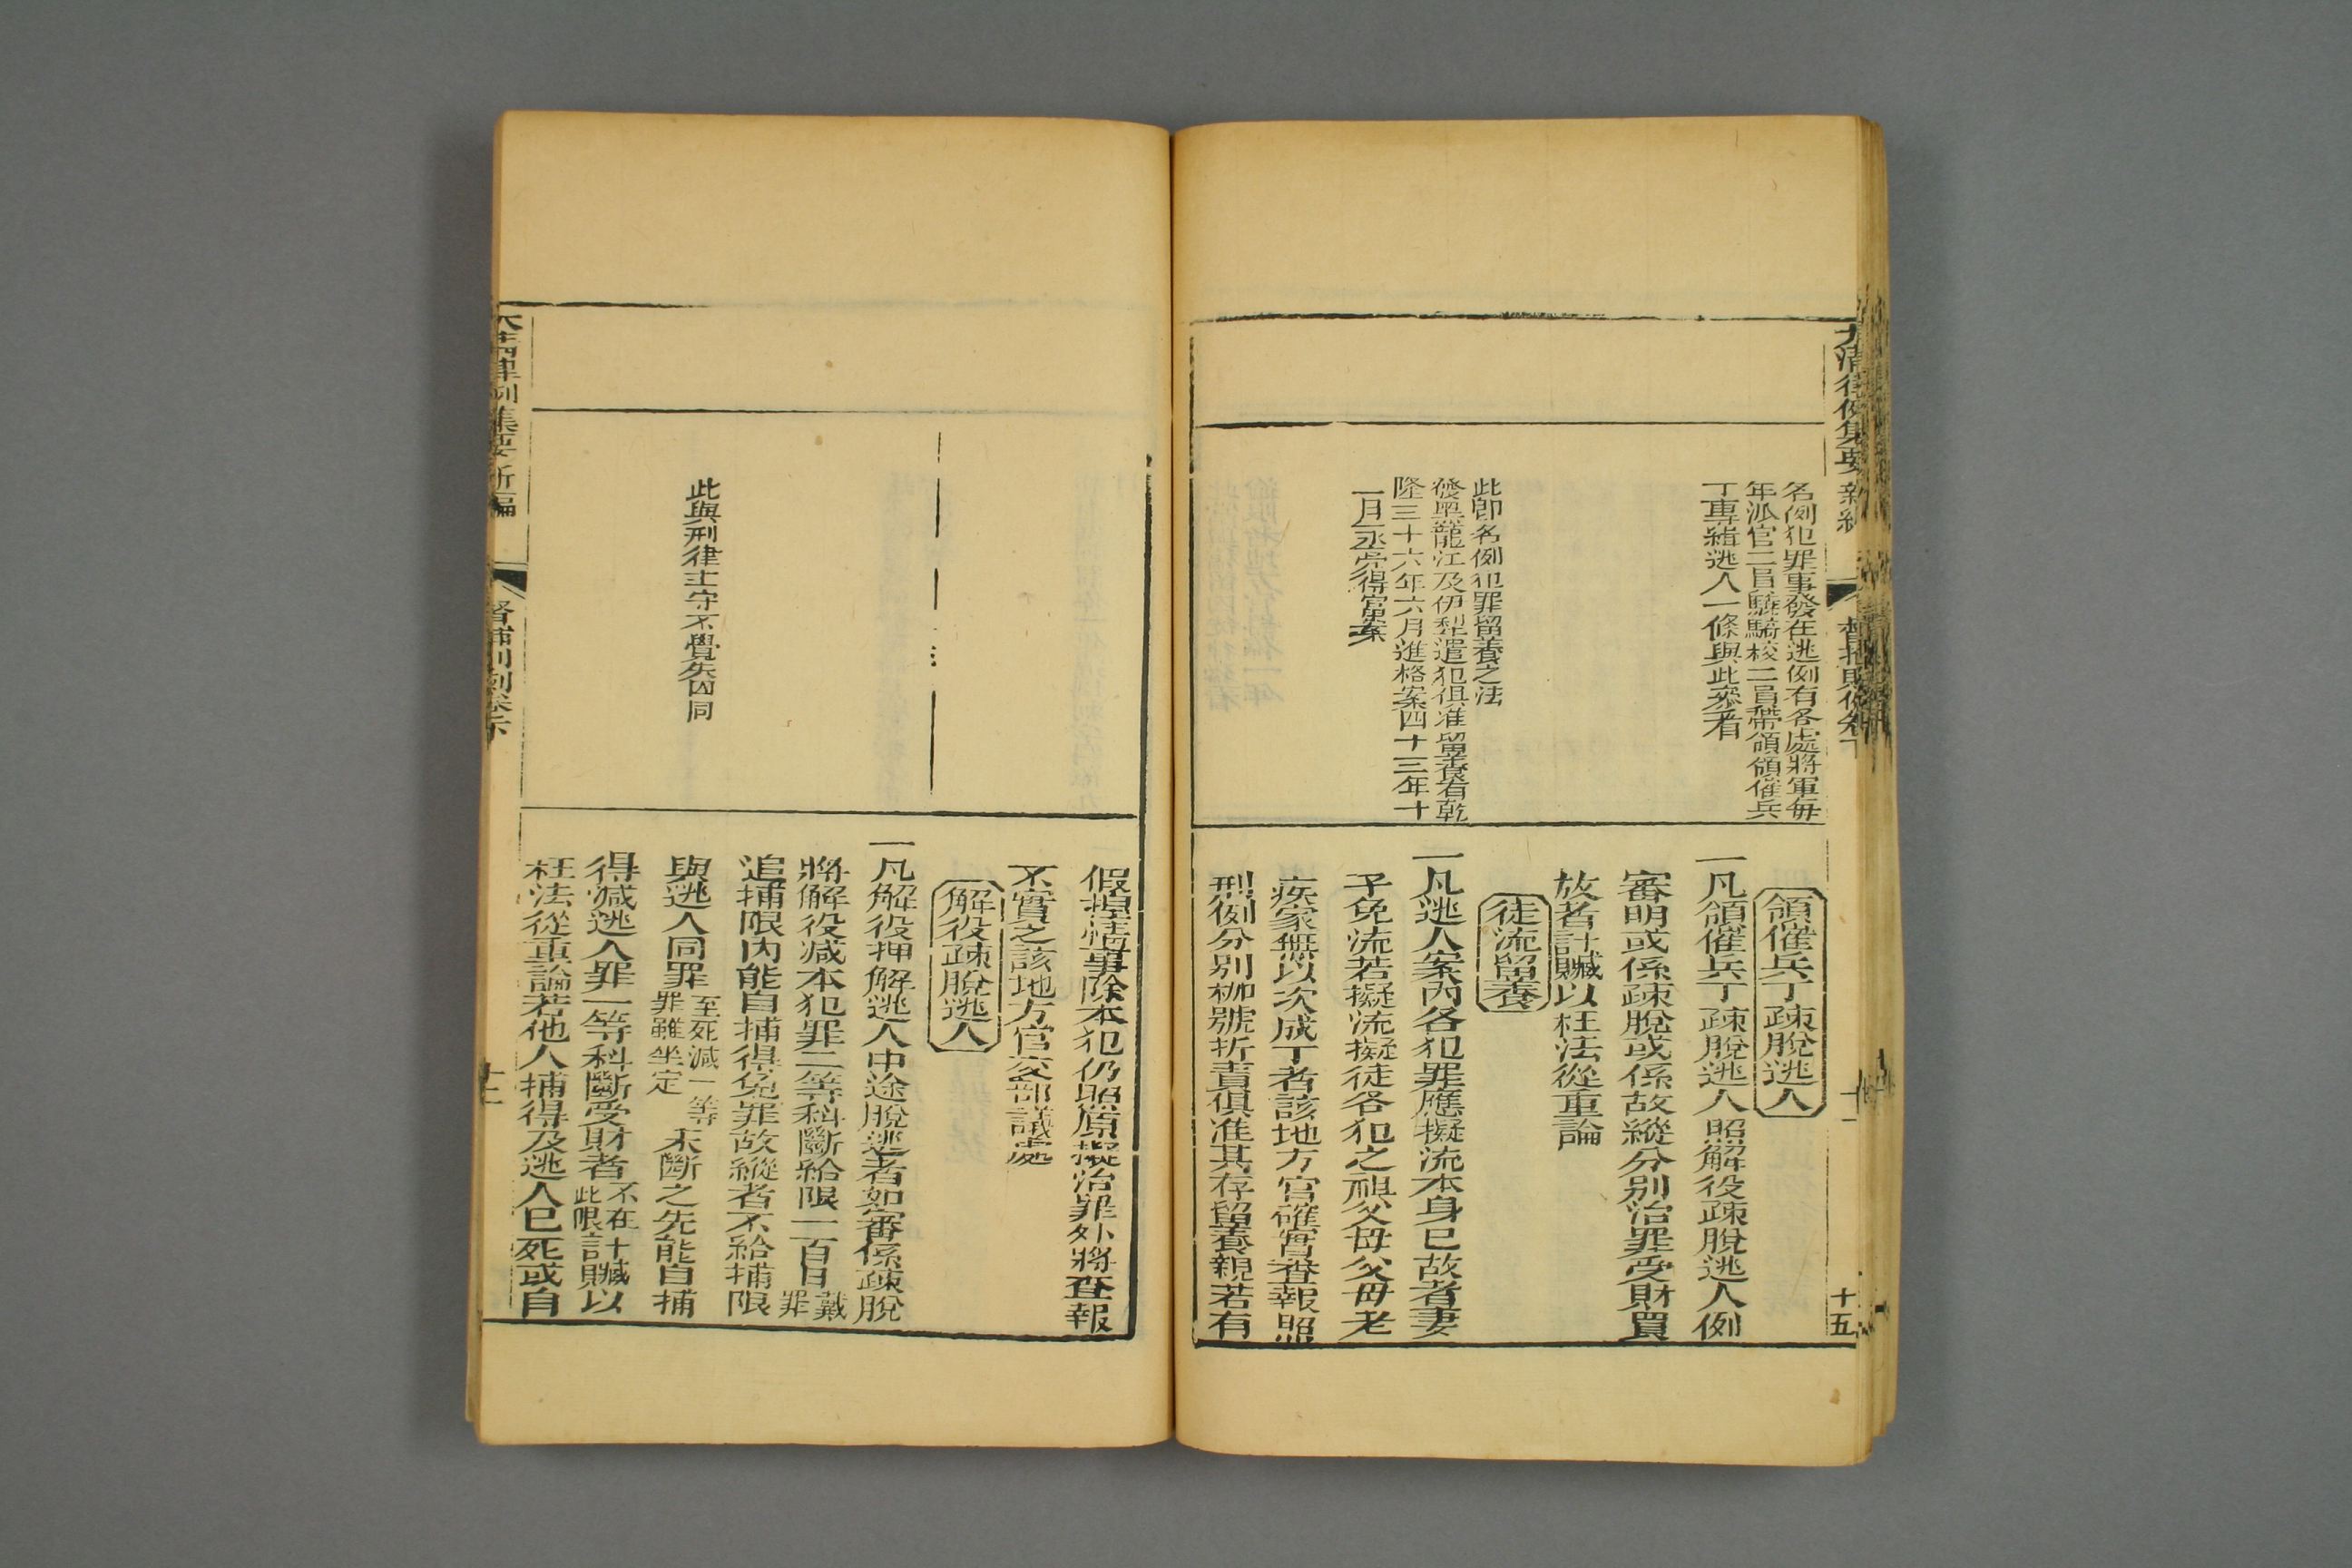 大清律例集要新編
督捕則例卷下
十五
名例犯罪事發在逃例有各處將軍每
年派官二員驍騎校二員帶領領催兵
丁專緝逃人一條與此叅看
此卽名例犯罪留養之法
發黑龍江及伊犂遣犯俱准留養有乾
隆三十六年六月進格案四十三年十
領催兵丁疎脫逃人
一凡領催兵丁疎脫逃人照解役疎脫逃人例
審明或係疎脫或係故縱分別治罪受財買
放者計贓以枉法從重論
徒流留養
一凡逃人案內各犯罪應擬流本身已故者妻
子免流若擬流擬徒各犯之祖父母父母老
疾家無以次成丁者該地方官確實查報照
刑例分別枷號折責俱准其存留養親若有
假捏情事除本犯仍照原擬治罪外將查報
不實之該地方官交部議處
此與刑律主守不覺失囚同
解役疎脫逃人
一凡解役押解逃人中途脫逃者如審係疎脫
將解役減本犯罪二等科斷給限一百日戴罪
追捕限內能自捕得免罪故縱者不給捕限
與逃人同罪至死減一等罪雖坐定未斷之先能自捕
得減逃人罪一等科斷受財者不在此限計贓以
枉法從重論若他人捕得及逃人已死或自
大清律例集要新編
督捕則例卷下